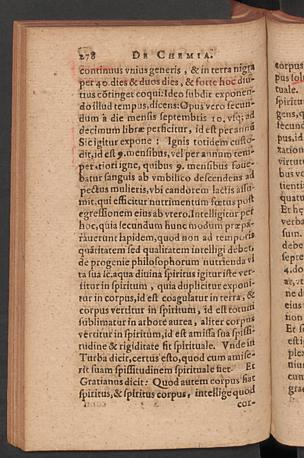 278 DE CHEMIA.
continuus vnius generis, & in terra nigra
per 40. dies & duos dies, & forte hoc diu-
tius cōtinget coqui: Ideo subdit exponen-
do illud tempus, dicens: Opus vero secun-
dum à die mensis septembris 10. vsq; ad
decimum libræ perficitur, id est per annū
Sic igitur expone: Ignis totidem custo-
dit, id est 9. mensibus, vel per annum tem-
perationi igne, quibus 9. mensibus foue-
batur sanguis ab vmbilico descendens ad
pectus mulieris, vbi candorem lactis assu-
mit, qui efficitur nutrimentum fœtus post
egressionem eius ab vtero. Intelligitur per
hoc, quia secundum hunc modum præpa-
rauerunt lapidem, quod non ad temporis
quātitatem sed qualitatem intelligi debet
de progenie philosophorum nutrienda vi
ta sua i.e. aqua diuina spiritus igitur iste ver-
titur in spiritum, quia dupliciter exponi-
tur in corpus, id est coagulatur in terra, &
corpus vertitur in spiritum, id est totum
sublimatur in arbore aurea, aliter corpus
vertitur in spiritum, id est amissa sua spissi-
tudine & rigiditate fit spirituale. Vnde in
Turba dicit, certus esto, quod cum amise-
rit suam spissitudinem spirituale fiet. Et
Gratianus dicit: Quod autem corpus fiat
spiritus, & spiritus corpus, intellige quod
cor-